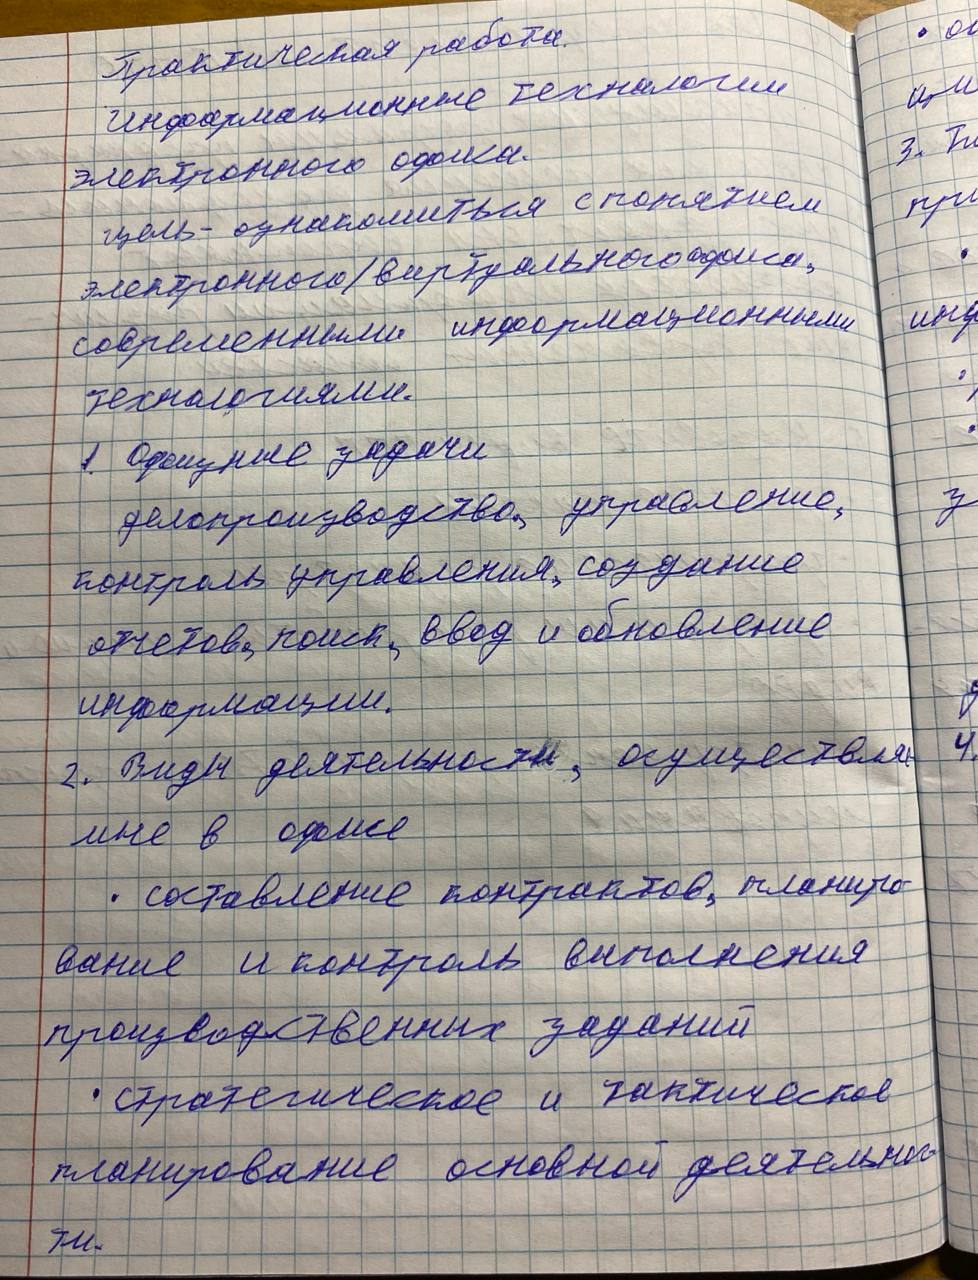 Практическая работа.
Информационные технологии
электронного офиса.
Цель - ознакомиться с понятием
электронного/виртуального офиса,
современными информационными
технологиями.
1. Офисные задачи
делопроизводство, управление,
контроль управления, создание
отчетов, поиск, ввод и обновление
информации.
2. Виды деятельности, осуществляе-
мые в офисе
· составление контрактов, планиро-
вание и контроль выполнения
производственных заданий
· стратегическое и тактическое
планирование основной деятельнос-
ти.
3.
4.